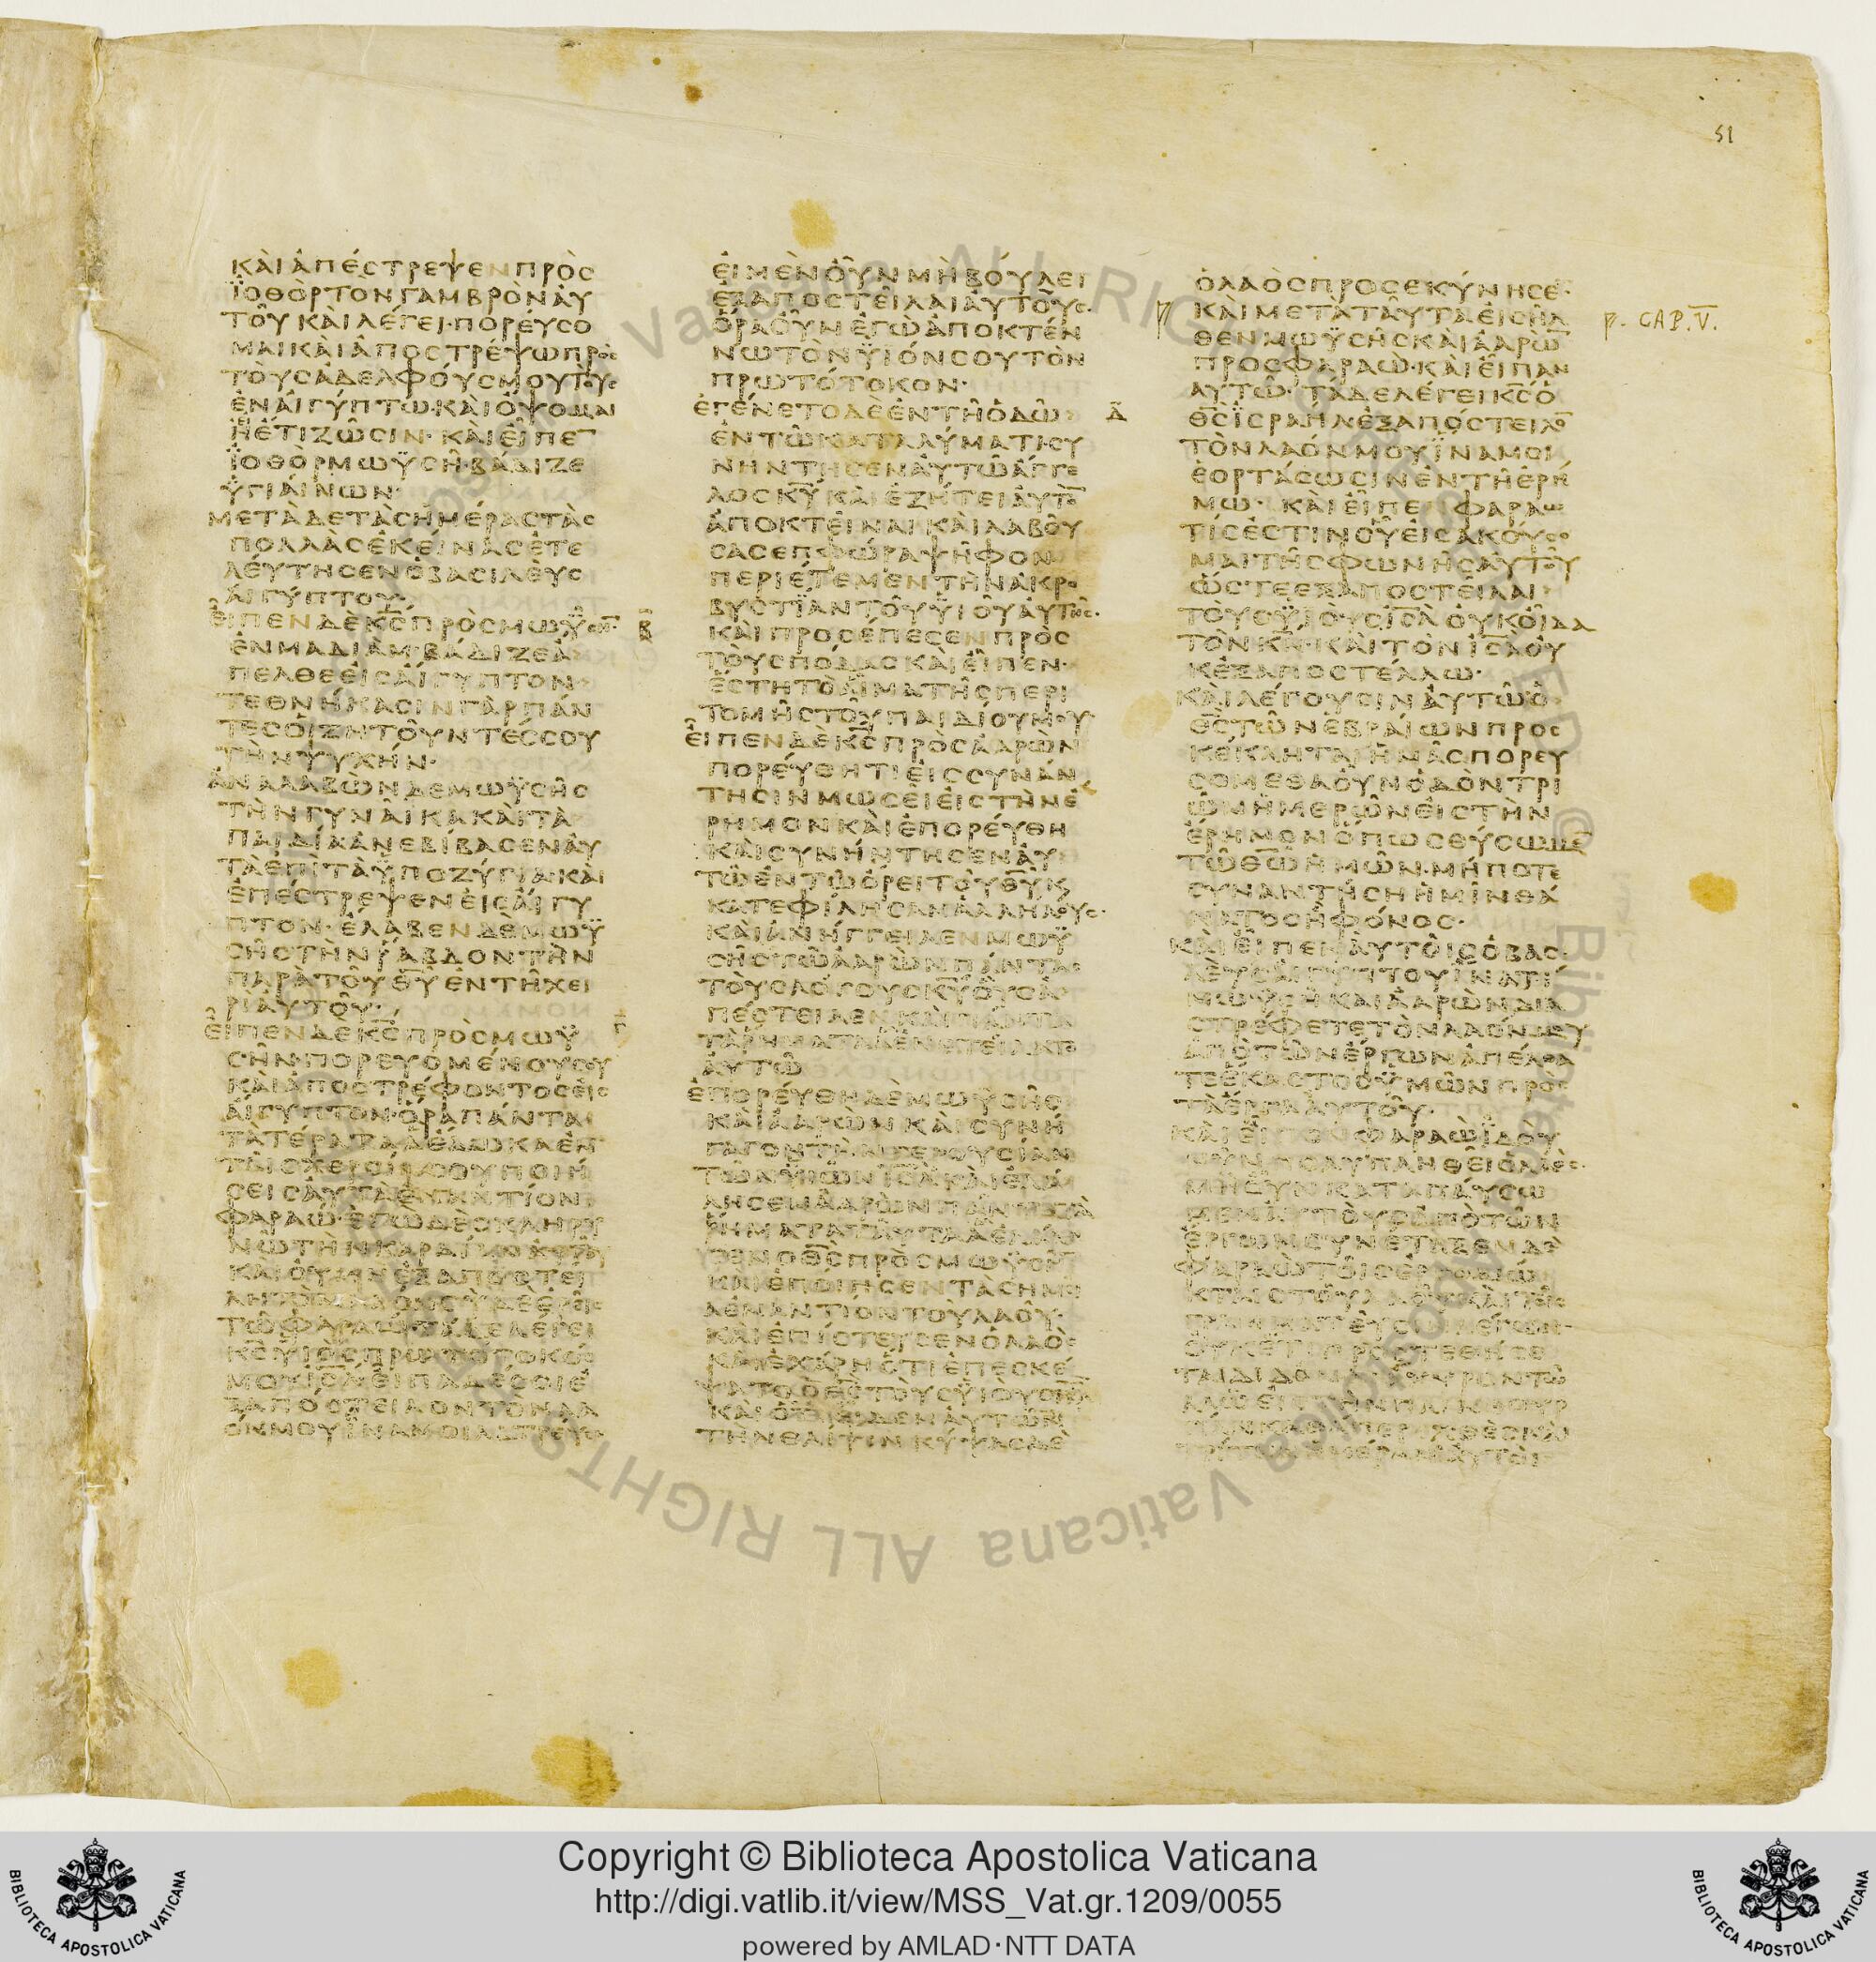 51
ΚΑΙΑΠΕϹΤΡΕΨΕΝΠΡΟϹ
ΪΟΘΟΡΤΟΝΓΑΜΒΡΟΝΑΥ
ΤΟΥΚΑΙΛΕΓΕΙ·ΠΟΡΕΥϹΟ
ΜΑΙΚΑΙΑΠΟϹΤΡΕΨΩΠΡΟϹ
ΤΟΥϹΑΔΕΛΦΟΥϹΜΟΥΤΟΥϹ
ΕΝΑΙΓΥΠΤΩ·ΚΑΙΟΨΟΜΑΙ
ΗΕΤΙΖΩϹΙΝ·ΚΑΙΕΙΠΕ̅
ΪΟΘΟΡΜΩΫϹΗ·ΒΑΔΙΖΕ
ΫΓΙΑΙΝΩΝ·
ΜΕΤΑΔΕΤΑϹΗΜΕΡΑϹΤΑϹ
ΠΟΛΛΑϹΕΚΕΙΝΑϹΕΤΕ
ΛΕΥΤΗϹΕΝΟΒΑϹΙΛΕΥϹ
ΑΙΓΥΠΤΟΥ·
ΕΙΠΕΝΔΕΚ̅Ϲ̅ΠΡΟϹΜΩΫϹΗ̅·
ΕΝΜΑΔΙΑΜ·ΒΑΔΙΖΕΑ
ΠΕΛΘΕΕΙϹΑΙΓΥΠΤΟΝ·
ΤΕΘΝΗΚΑϹΙΝΓΑΡΠΑΝ
ΤΕϹΟΙΖΗΤΟΥΝΤΕϹϹΟΥ
ΤΗΝΨΥΧΗΝ·
ΑΝΑΛΑΒΩΝΔΕΜΩΫϹΗϹ
ΤΗΝΓΥΝΑΙΚΑΚΑΙΤΑ
ΠΑΙΔΙΑΑΝΕΒΙΒΑϹΕΝΑΥ
ΤΑΕΠΙΤΑΫΠΟΖΥΓΙΑΚΑΙ
ΕΠΕϹΤΡΕΨΕΝΕΙϹΑΙΓΥ
ΠΤΟΝ·ΕΛΑΒΕΝΔΕΜΩΫ
ϹΗϹΤΗΝΡΑΒΔΟΝΤΗΝ
ΠΑΡΑΤΟΥΘ̅Υ̅ΕΝΤΗΧΕΙ
ΡΙΑΥΤΟΥ·
ΕΙΠΕΝΔΕΚ̅Ϲ̅ΠΡΟϹΜΩΫ
ϹΗΝ·ΠΟΡΕΥΟΜΕΝΟΥϹΟΥ
ΚΑΙΑΠΟϹΤΡΕΦΟΝΤΟϹΕΙϹ
ΑΙΓΥΠΤΟΝ·ΟΡΑΠΑΝΤΑ
ΤΑΤΕΡΑΤΑΑΔΕΔΩΚΑΕΝ
ΤΑΙϹΧΕΡϹΙΝϹΟΥΠΟΙΗ
ϹΕΙϹΑΥΤΑΕΝΑΝΤΙΟΝ
ΦΑΡΑΩ·ΕΓΩΔΕϹΚΛΗΡΥ
ΝΩΤΗΝΚΑΡΔΙΑΝΑΥΤΟΥ
ΚΑΙΟΥΜΗΕΞΑΠΟϹΤΕΙ
ΛΗΤΟΝΛΑΟΝ·ϹΥΔΕΕΡΕΙϹ
ΤΩΦΑΡΑΩ·ΤΑΔΕΛΕΓΕΙ
Κ̅Ϲ̅ΫΙΟϹΠΡΩΤΟΤΟΚΟϹ
ΜΟΥΙ̅Ϲ̅Λ̅·ΕΙΠΑΔΕϹΟΙΕ
ΞΑΠΟϹΤΕΙΛΟΝΤΟΝΛΑ
ΟΝΜΟΥΪΝΑΜΟΙΛΑΤΡΕΥϹΗ
Β̅
Γ̅
ΕΙΜΕΝΟΥΝΜΗΒΟΥΛΕΙ
ΕΞΑΠΟϹΤΕΙΛΑΙΑΥΤΟΥϹ·
ΟΡΑΟΥΝΕΓΩΑΠΟΚΤΕΝ
ΝΩΤΟΝΫΙΟΝϹΟΥΤΟΝ
ΠΡΩΤΟΤΟΚΟΝ·
ΕΓΕΝΕΤΟΔΕΕΝΤΗΟΔΩ
ΕΝΤΩΚΑΤΑΛΥΜΑΤΙϹΥ
ΝΗΝΤΗϹΕΝΑΥΤΩΑΓΓΕ
ΛΟϹΚ̅Υ̅ΚΑΙΕΖΗΤΕΙΑΥΤΟ̅
ΑΠΟΚΤΕΙΝΑΙ·ΚΑΙΛΑΒΟΥ
ϹΑϹΕΠΦΩΡΑΨΗΦΟΝ
ΠΕΡΙΕΤΕΜΕΝΤΗΝΑΚΡΟ
ΒΥϹΤΙΑΝΤΟΥΫΙΟΥΑΥΤΗϹ·
ΚΑΙΠΡΟϹΕΠΕϹΕΝΠΡΟϹ
ΤΟΥϹΠΟΔΑϹΚΑΙΕΙΠΕΝ·
ΕϹΤΗΤΟΑΙΜΑΤΗϹΠΕΡΙ
ΤΟΜΗϹΤΟΥΠΑΙΔΙΟΥΜΟΥ·
ΕΙΠΕΝΔΕΚ̅Ϲ̅ΠΡΟϹΑΑΡΩΝ
ΠΟΡΕΥΘΗΤΙΕΙϹϹΥΝΑΝ
ΤΗϹΙΝΜΩϹΕΙΕΙϹΤΗΝΕ
ΡΗΜΟΝΚΑΙΕΠΟΡΕΥΘΗ
ΚΑΙϹΥΝΗΝΤΗϹΕΝΑΥ
ΤΩΕΝΤΩΟΡΕΙΤΟΥΘ̅Υ̅Κ
ΚΑΤΕΦΙΛΗϹΑΝΑΛΛΗΛΟΥϹ·
ΚΑΙΑΝΗΓΓΕΙΛΕΝΜΩΫ
ϹΗϹΤΩΑΑΡΩΝΠΑΝΤΑϹ
ΤΟΥϹΛΟΓΟΥϹΚ̅Υ̅ΟΥϹΑ
ΠΕϹΤΕΙΛΕΝΚΑΙΠΑΝΤΑ
ΤΑΡΗΜΑΤΑΑΕΝΕΤΕΙΛΑΤΟ
ΑΥΤΩ
ΕΠΟΡΕΥΘΗΔΕΜΩΫϹΗϹ
ΚΑΙΑΑΡΩΝΚΑΙϹΥΝΗ
ΓΑΓΟΝΤΗΝΓΕΡΟΥϹΙΑΝ
ΤΩΝΫΙΩΝΙ̅Ϲ̅Λ̅ΚΑΙΕΛΑ
ΛΗϹΕΝΑΑΡΩΝΠΑΝΤΑΤΑ
ΡΗΜΑΤΑΤΑΥΤΑΑΕΛΑΛΗ
ϹΕΝΟΘ̅Ϲ̅ΠΡΟϹΜΩΫϹΗ̅
ΚΑΙΕΠΟΙΗϹΕΝΤΑϹΗΜΕΙ
ΑΕΝΑΝΤΙΟΝΤΟΥΛΑΟΥ·
ΚΑΙΕΠΙϹΤΕΥϹΕΝΟΛΑΟϹ
ΚΑΙΕΧΑΡΗΟΤΙΕΠΕϹΚΕ
ΨΑΤΟΟΘ̅Ϲ̅ΤΟΥϹΫΙΟΥϹΙ̅Ϲ̅Λ̅
ΚΑΙΟΤΙΕΙΔΕΝΑΥΤΩΝ
ΤΗΝΘΛΙΨΙΝΚΥΨΑϹΔΕ
Α̅
ΟΛΑΟϹΠΡΟϹΕΚΥΝΗϹΕ·
ΚΑΙΜΕΤΑΤΑΥΤΑΕΙϹΗΛ
ΘΕΝΜΩΫϹΗϹΚΑΙΑΑΡΩ̅
ΠΡΟϹΦΑΡΑΩ·ΚΑΙΕΙΠΑΝ
ΑΥΤΩ·ΤΑΔΕΛΕΓΕΙΚ̅Ϲ̅Ο
Θ̅Ϲ̅ΪϹΡΑΗΛ·ΕΞΑΠΟϹΤΕΙΛΟ̅
ΤΟΝΛΑΟΝΜΟΥΪΝΑΜΟΙ
ΕΟΡΤΑϹΩϹΙΝΕΝΤΗΕΡΗ
ΜΩ·ΚΑΙΕΙΠΕΦΑΡΑΩ
ΤΙϹΕϹΤΙΝΟΥΕΙϹΑΚΟΥϹΟ
ΜΑΙΤΗϹΦΩΝΗϹΑΥΤΟΥ
ΩϹΤΕΕΞΑΠΟϹΤΕΙΛΑΙ
ΤΟΥϹΫΙΟΥϹΙ̅Ϲ̅Λ̅ΟΥΚΟΙΔΑ
ΤΟΝΚ̅Ν̅·ΚΑΙΤΟΝΙ̅Ϲ̅Λ̅ΟΥ
ΚΕΞΑΠΟϹΤΕΛΛΩ·
ΚΑΙΛΕΓΟΥϹΙΝΑΥΤΩΟ
Θ̅Ϲ̅ΤΩΝΕΒΡΑΙΩΝΠΡΟϹ
ΚΕΚΛΗΤΑΙΗΜΑϹΠΟΡΕΥ
ϹΟΜΕΘΑΟΥΝΟΔΟΝΤΡΙ
ΩΝΗΜΕΡΩΝΕΙϹΤΗΝ
ΕΡΗΜΟΝΟΠΩϹΘΥϹΩΜΕ̅
ΤΩΘ̅Ω̅ΗΜΩΝ·ΜΗΠΟΤΕ
ϹΥΝΑΝΤΗϹΗΗΜΙΝΘΑ
ΝΑΤΟϹΗΦΟΝΟϹ·
ΚΑΙΕΙΠΕΝΑΥΤΟΙϹΟΒΑϹΙ
ΛΕΥϹΑΙΓΥΠΤΟΥΪΝΑΤΙ
ΜΩΫϹΗΚΑΙΑΑΡΩΝΔΙΑ
ϹΤΡΕΦΕΤΕΤΟΝΛΑΟΝΜΟΥ
ΑΠΟΤΩΝΕΡΓΩΝΑΠΕΛΘΑ
ΤΕΕΚΑϹΤΟϹΫΜΩΝΠΡΟϹ
ΤΑΕΡΓΑΑΥΤΟΥ·
ΚΑΙΕΙΠΕΝΦΑΡΑΩΪΔΟΥ
ΝΥΝΠΟΛΥΠΛΗΘΕΙΟΛΑΟϹ·
ΜΗΟΥΝΚΑΤΑΠΑΥϹΩ
ΜΕΝΑΥΤΟΥϹΑΠΟΤΩΝ
ΕΡΓΩΝϹΥΝΕΤΑΞΕΝΔΕ
ΦΑΡΑΩΤΟΙϹΕΡΓΟΔΙΩ
ΚΤΑΙϹΤΟΥΛΑΟΥΚΑΙΤΟΙϹ
p. CAP. V.
Copyright © Biblioteca Apostolica Vaticana
http://digi.vatlib.it/view/MSS_Vat.gr.1209/0055
powered by AMLAD·NTT DATA
BIBLIOTECA APOSTOLICA VATICANA
BIBLIOTECA APOSTOLICA VATICANA